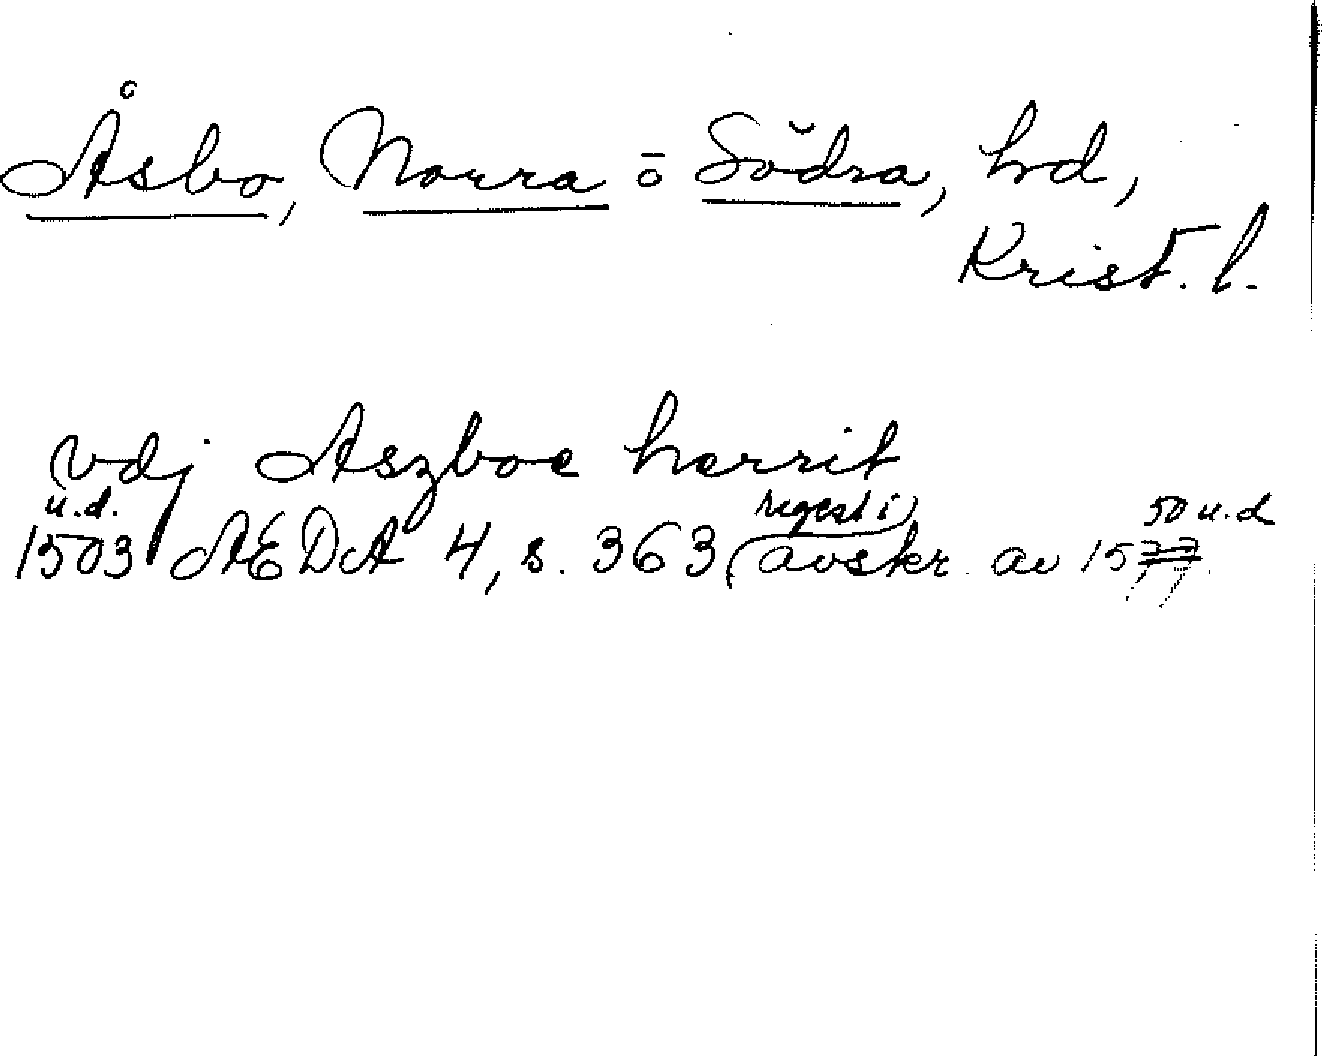 Åsbo, Norra ō Södra, hd,
Krist. l.
vdj Aszboe herrit
u.d. regest i 50 u.d
1503 ÆDA 4, s. 363 (avskr. av 1577